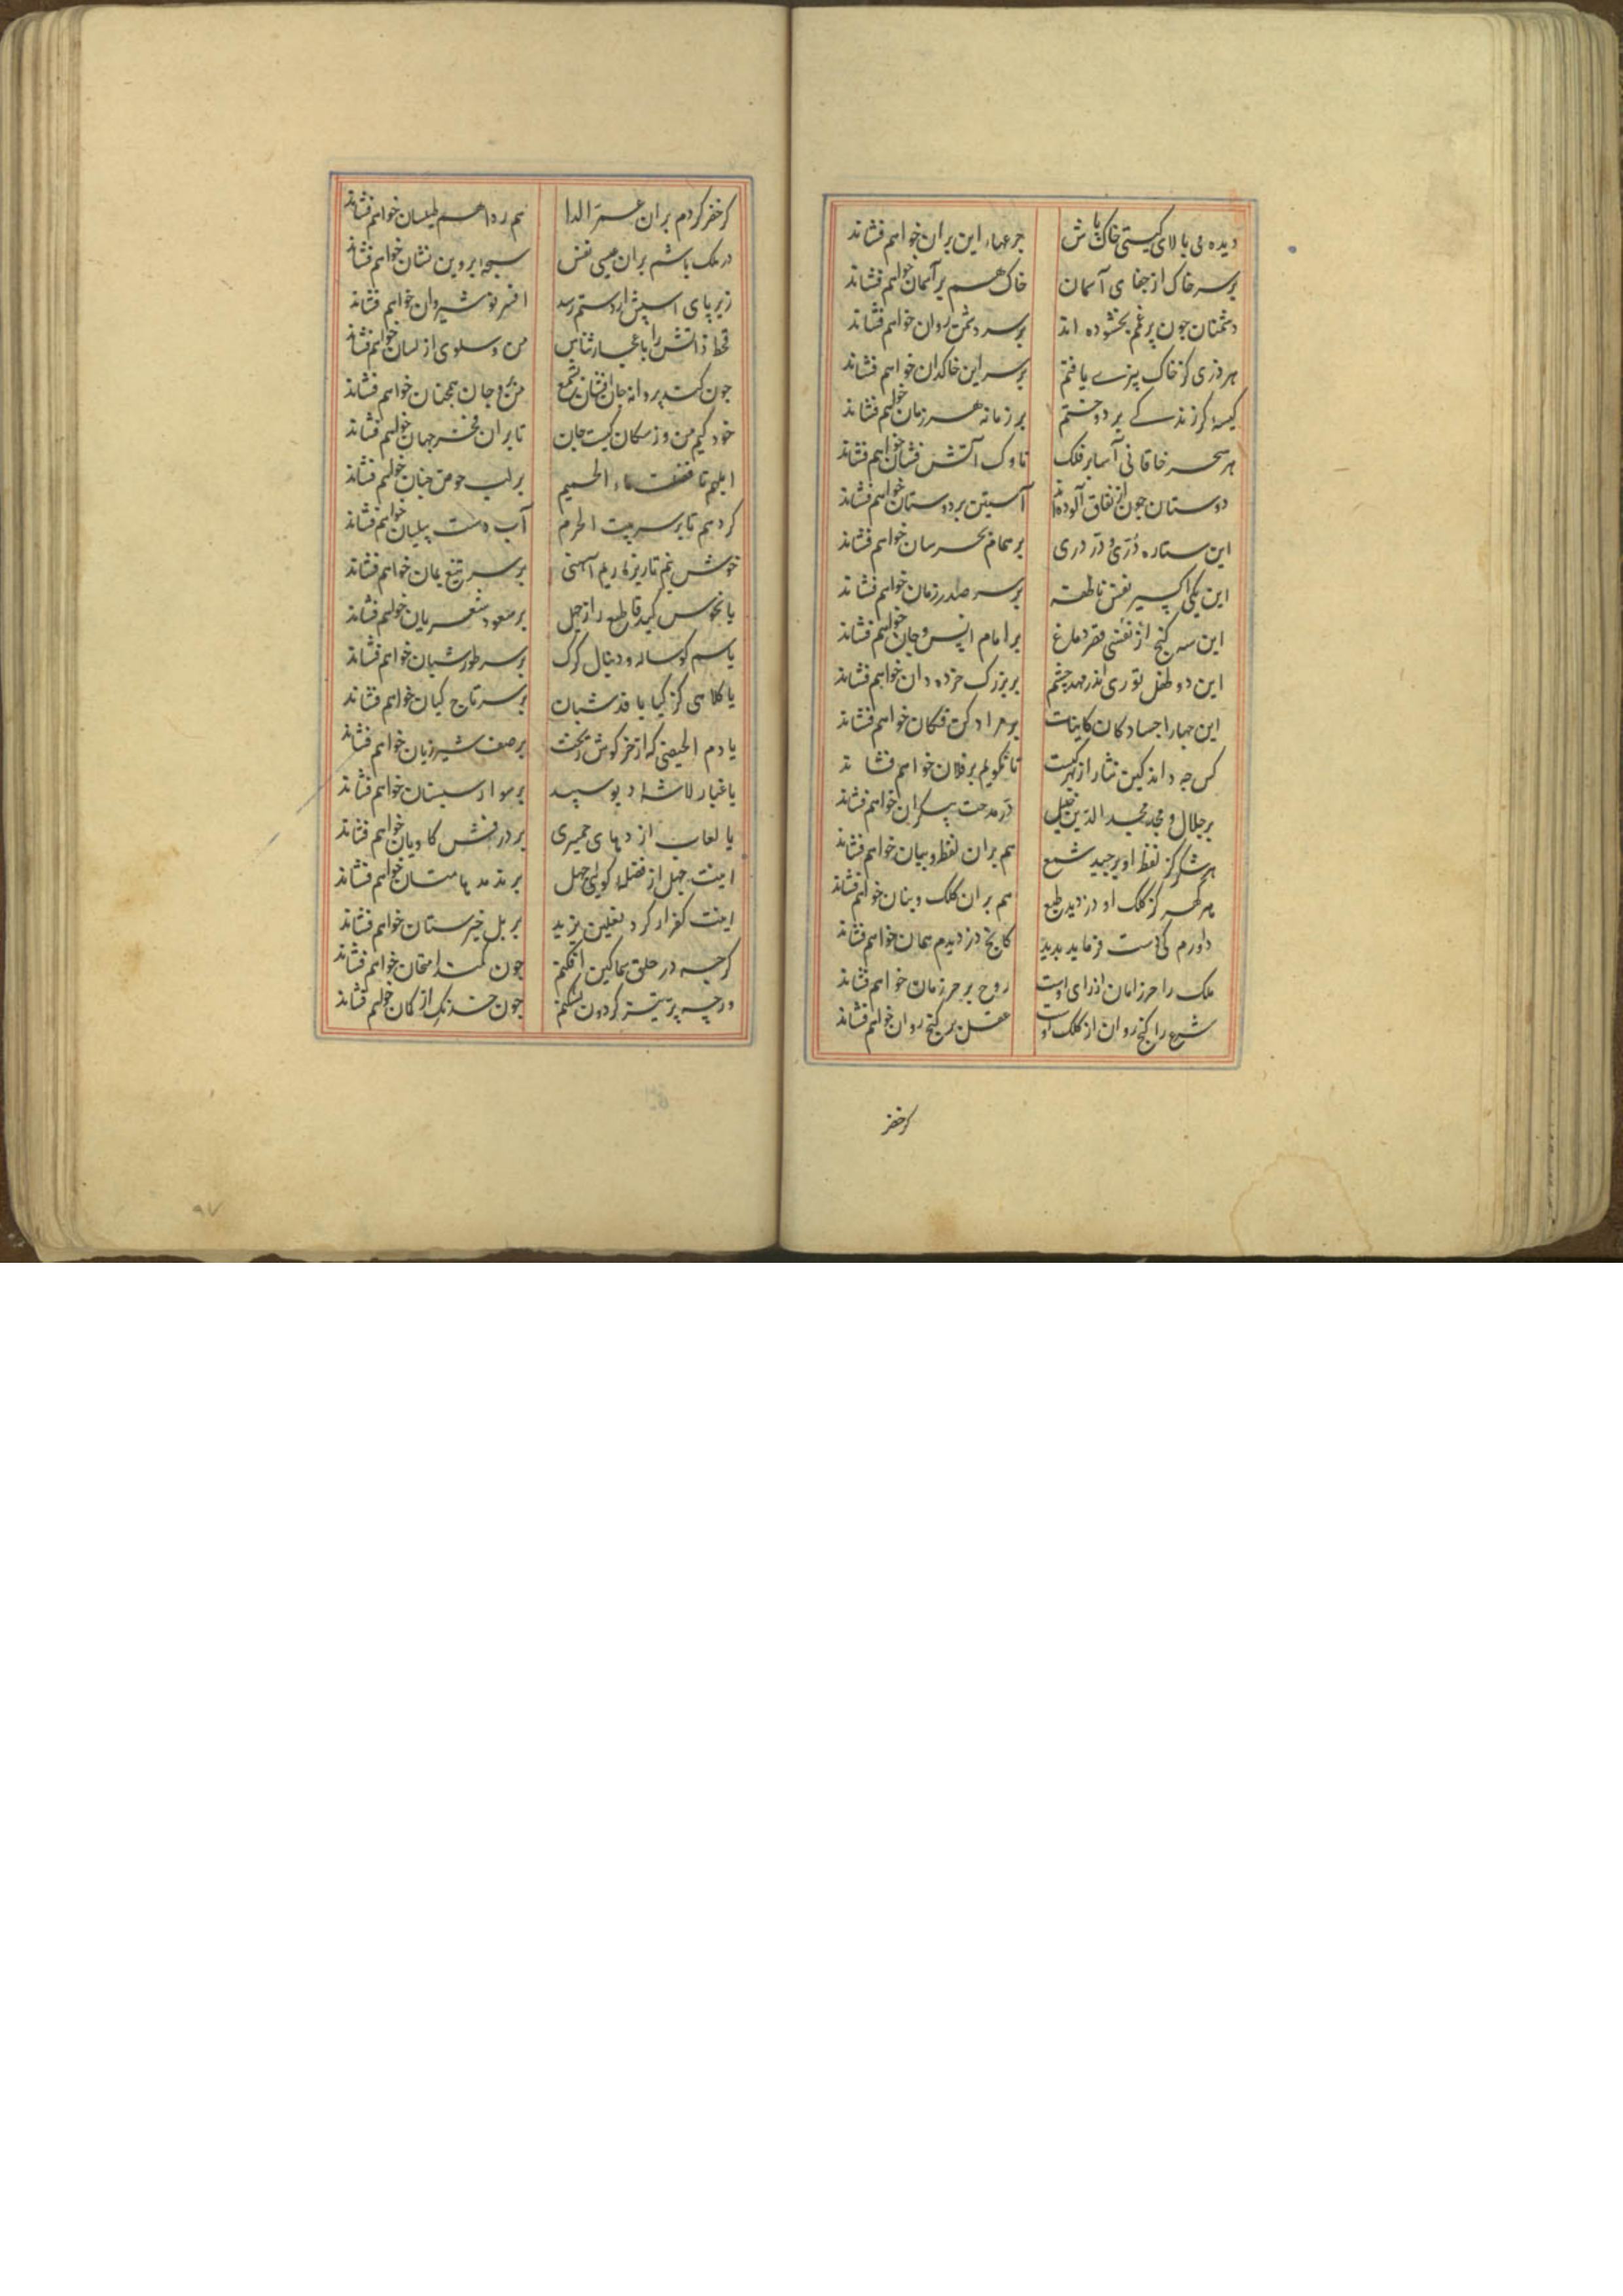 دیده می بالای کیتی خاک پاش جرعها، این بران خواهم فشاند
بر سر خاک از جفای آسمان خاک هم بر آسمان خواهم فشاند
دشمنان چون بر غم بخشوده اند بر سر دشمن روان خواهم فشاند
هر دری کز خاک بیزے یافتم بر سر این خاکدان خواهم فشاند
کیسهٔ کز زندکے بر دوختم بر زمانه هر زمان خواهم فشاند
هر سحر خاقانی آسا بر فلک ناوک آتش فشان خواهم فشاند
دوستان چون از نفاق آلوده اند آستین بر دوستان خواهم فشاند
این ستاره دُرّی و دُرّ دری بر همام بحر سان خواهم فشاند
این یکی اکسیر نفس ناطقه بر سر صدر زمان خواهم فشاند
این سه کنج از نفسی فقر دماغ بر امام انس و جان خواهم فشاند
این دو طفل نوری اندر مهد چشم بر بزرک خرده دان خواهم فشاند
این چهار اجساد کان کاینات بر مراد کن فکان خواهم فشاند
کس چه داند کین نثار از بهر کیست تا نکویم بر فلان خواهم فشاند
بر جلال و مجد مجد الدین خلیل در مدحت بیکران خواهم فشاند
هر شکر کز لفظ او برچید شمع هم بران لفظ و بیان خواهم فشاند
هر کهر کز کلک او دزدید طبع هم بران کلک و بنان خواهم فشاند
داورم کی دست فرماید برید کانج دزدیدم همان خواهم فشاند
ملک را حرز امان از رای اوست روح بر حرز امان خواهم فشاند
شرع را کنج روان از کلک اوست عقل بر کنج روان خواهم فشاند
کر خضر
کر خضر کردم بران عمر الدا هم ردا هم طیلسان خواهم فشاند
در ملک باشم بران عیسی نفس سبحهٔ پروین نشان خواهم فشاند
زیر پای اسپش ار دستم رسد افسر نوشیروان خواهم فشاند
قحط دانش را باعجاز ثناش من و سلوی از لسان خواهم فشاند
چون کند پروانه جان افشان بشمع من بر او جان همچنان خواهم فشاند
خود کیم من وز سکان کیست جان تا بران فخر جهان خواهم فشاند
ابلهم تا فضلت ماء الحمیم بر لب حوض جنان خواهم فشاند
کردهم تا بر سر بیت الحرم آب دست پیلبان خواهم فشاند
خوش نیم تا ریزه ریم آهنی بر سر تیغ یمان خواهم فشاند
یا نحوس کید قاطع را ز جهل بر سعود شعریان خواهم فشاند
یا سم کوساله و دنبال کرک بر سر طور شبان خواهم فشاند
یا کلاهی کز کیا بافد شبان بر سر تاج کیان خواهم فشاند
یا دم الحیضی که از خرکوش ریخت بر صف شیر ژیان خواهم فشاند
یا غبار لاشهٔ دیو سپید بر سوار سیستان خواهم فشاند
یا لعاب اژدهای حمیری بر درفش کاویان خواهم فشاند
اینت جهل از فضلهٔ کوی جهل خواهم فشاند
اینت کفر ار کرد نعلین یزید بر یل خیبرستان خواهم فشاند
کرچه در حلق سماکین افکنم چون کمند امتحان خواهم فشاند
ورچه پر تیتر کردون بشکنم چون خدنک از کمان خواهم فشاند
۹۷